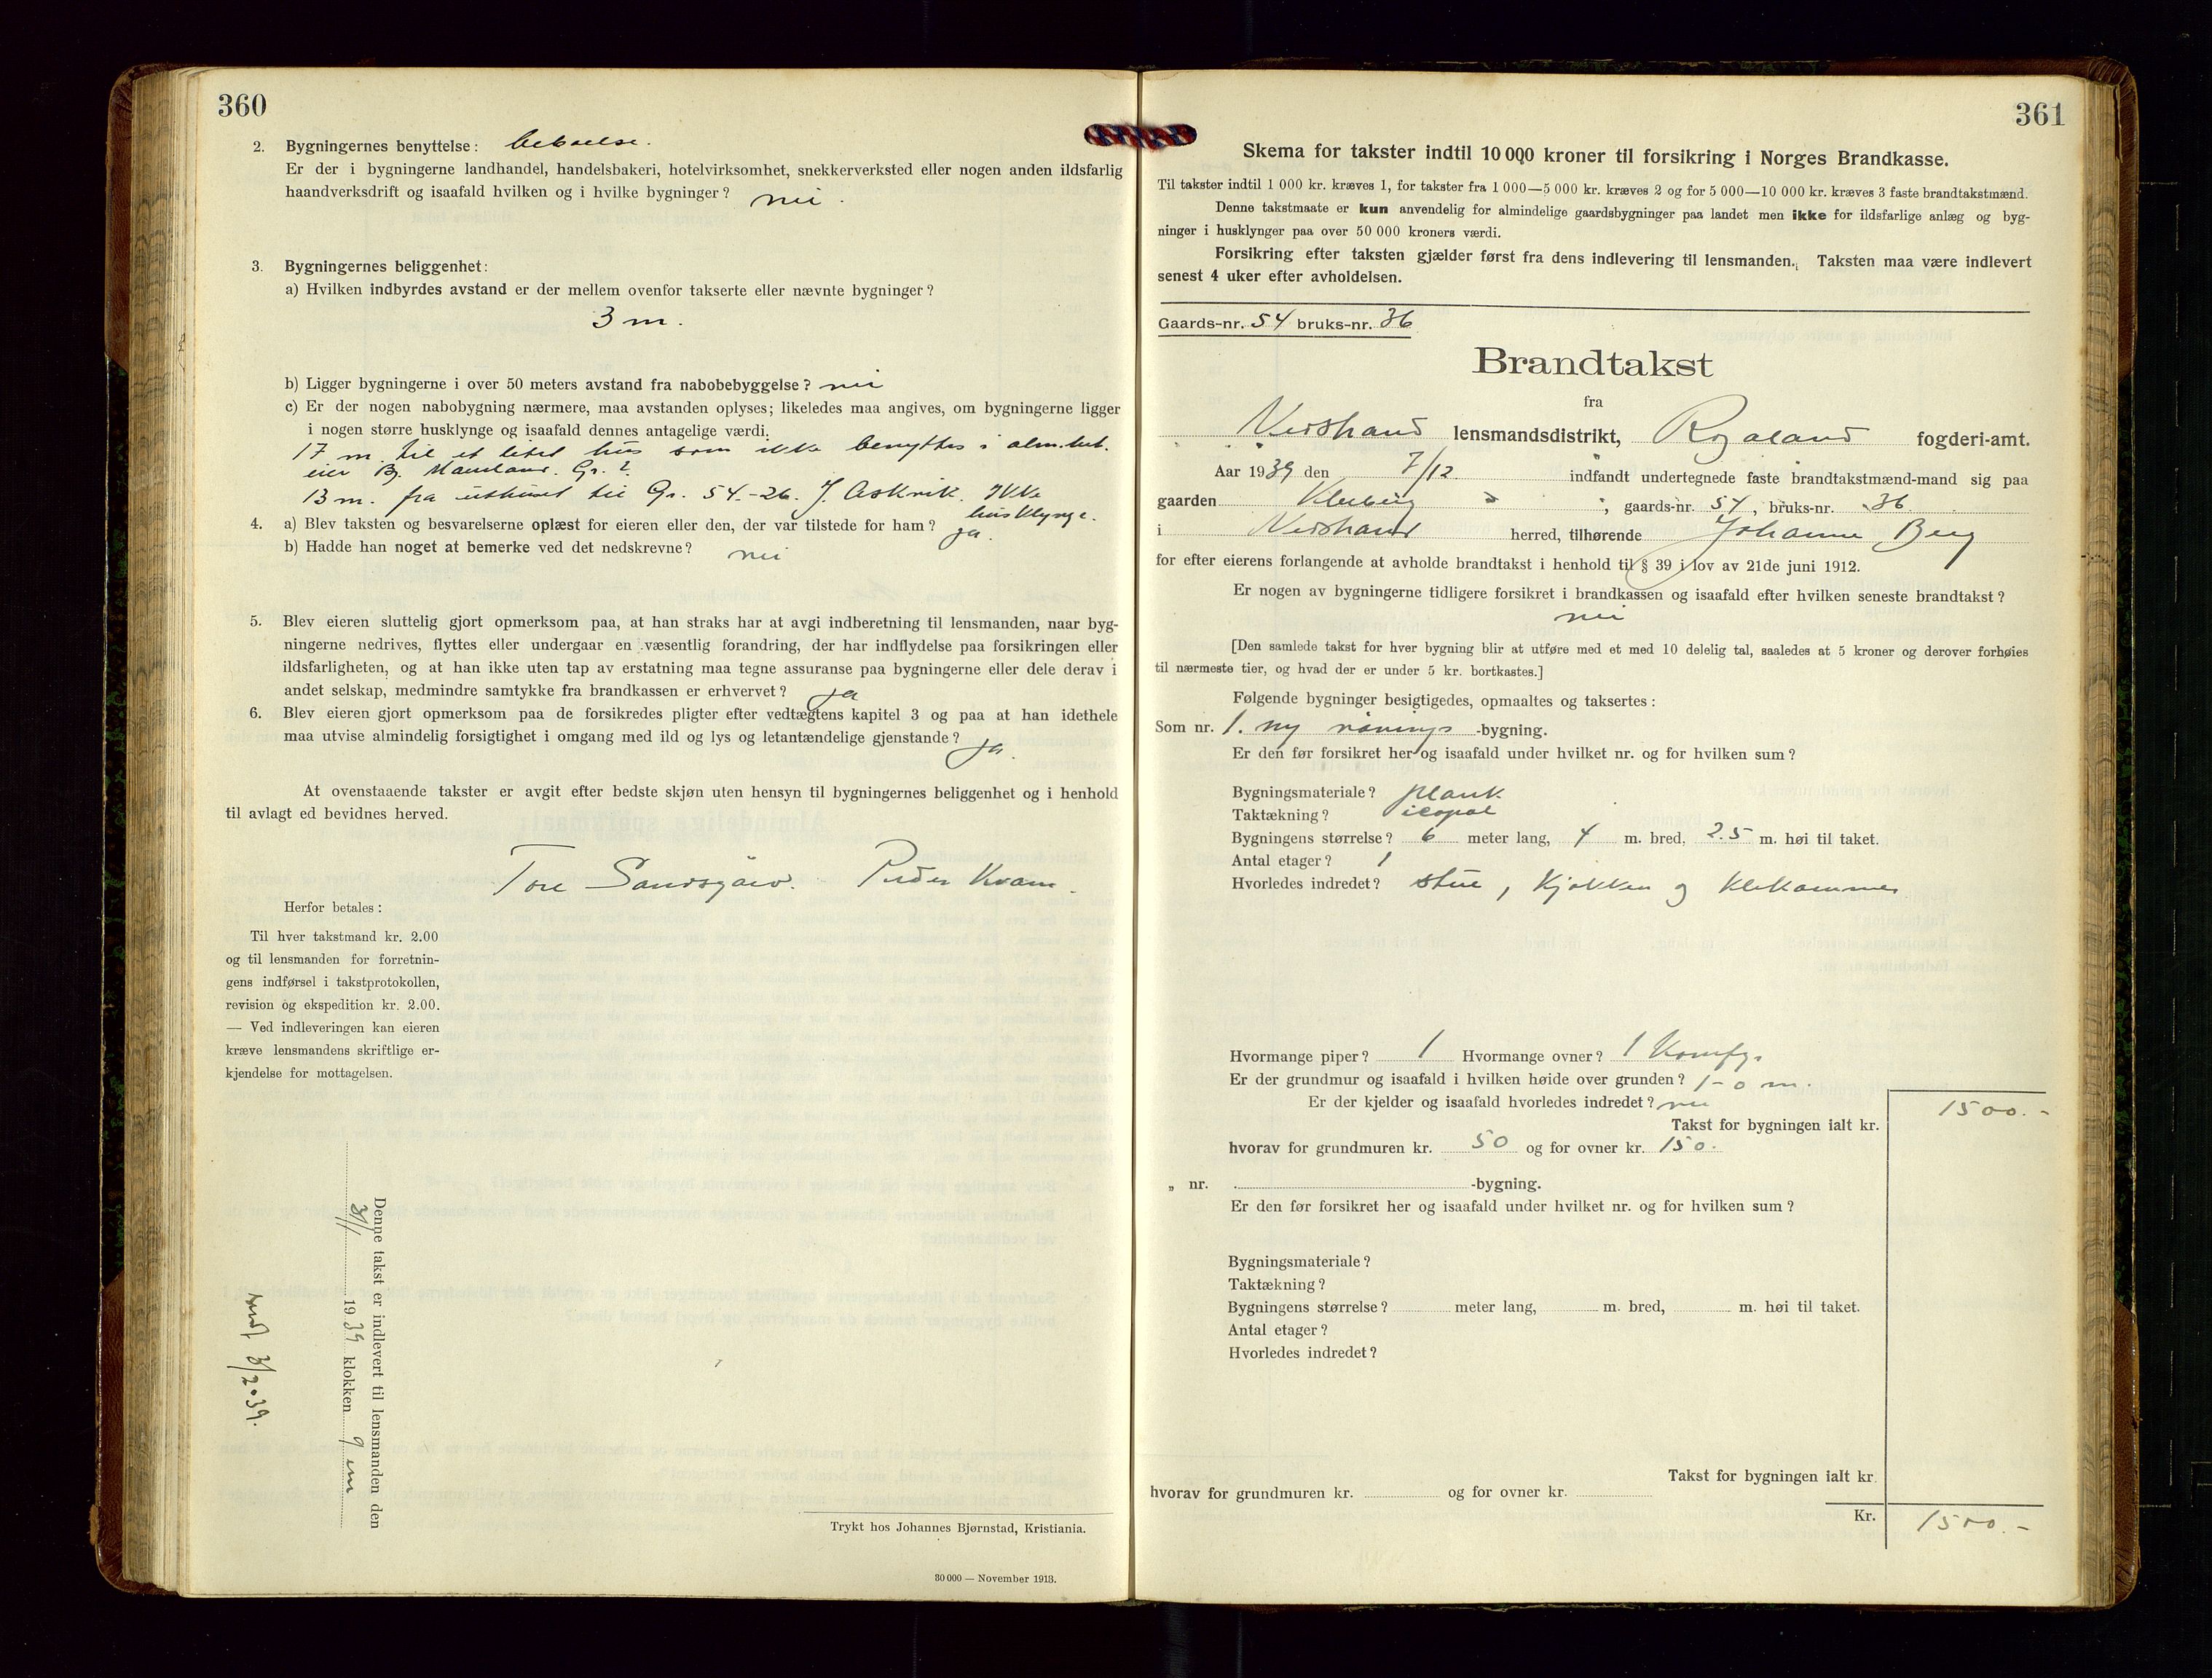 360
2. Bygningernes benyttelse: beboelse.
Er der i bygningerne landhandel, handelsbakeri, hotelvirksomhet, snekkerverksted eller nogen anden ildsfarlig
haandverksdrift og isaafald hvilken og i hvilke bygninger? nei.
3. Bygningernes beliggenhet:
a) Hvilken indbyrdes avstand er der mellem ovenfor takserte eller nævnte bygninger?
3 m.
b) Ligger bygningerne i over 50 meters avstand fra nabobebyggelse? nei
c) Er der nogen nabobygning nærmere, maa avstanden oplyses; likeledes maa angives, om bygningerne ligger
i nogen større husklynge og isaafald dennes antagelige værdi.
17 m. til et litet hus som ikke benyttes i alm.het.
eier Bj. Gr. ?
13 m. fra uthuset til Gr. 54.-26. J. Askvik. Ikke
husklynge.
4. a) Blev taksten og besvarelserne oplæst for eieren eller den, der var tilstede for ham? ja.
b) Hadde han noget at bemerke ved det nedskrevne? nei
5. Blev eieren sluttelig gjort opmerksom paa, at han straks har at avgi indberetning til lensmanden, naar byg-
ningerne nedrives, flyttes eller undergaar en væsentlig forandring, der har indflydelse paa forsikringen eller
ildsfarligheten, og at han ikke uten tap av erstatning maa tegne assuranse paa bygningerne eller dele derav i
andet selskap, medmindre samtykke fra brandkassen er erhvervet? ja
6. Blev eieren gjort opmerksom paa de forsikredes pligter efter vedtægtens kapitel 3 og paa at han idethele
maa utvise almindelig forsigtighet i omgang med ild og lys og letantændelige gjenstande? ja.
At ovenstaaende takster er avgit efter bedste skjøn uten hensyn til bygningernes beliggenhet og i henhold
til avlagt ed bevidnes herved.
Tore Sandsgård. Peder Kvam.
Herfor betales:
Til hver takstmand kr. 2.00
og til lensmanden for forretnin-
gens indførsel i takstprotokollen,
revision og ekspedition kr. 2.00.
— Ved indleveringen kan eieren
kræve lensmandens skriftlige er-
kjendelse for mottagelsen.
Denne takst er indlevert til lensmanden den
31/1 1939 klokken 9 em
send 3/2.39.
Trykt hos Johannes Bjørnstad, Kristiania.
30 000 — November 1913.
361
Skema for takster indtil 10 000 kroner til forsikring i Norges Brandkasse.
Til takster indtil 1 000 kr. kræves 1, for takster fra 1 000—5 000 kr. kræves 2 og for 5 000—10 000 kr. kræves 3 faste brandtakstmænd.
Denne takstmaate er kun anvendelig for almindelige gaardsbygninger paa landet men ikke for ildsfarlige anlæg og byg-
ninger i husklynger paa over 50 000 kroners værdi.
Forsikring efter taksten gjælder først fra dens indlevering til lensmanden. Taksten maa være indlevert
senest 4 uker efter avholdelsen.
Gaards-nr. 54 bruks-nr. 36
Brandtakst
fra
Nedstrand lensmandsdistrikt, Rogaland fogderi-amt.
Aar 1939 den 7/12. indfandt undertegnede faste brandtakstmænd-mand sig paa
gaarden Kleiberg ; gaards-nr. 54, bruks-nr. 36
i Nedstrand herred, tilhørende Johanne Berg
for efter eierens forlangende at avholde brandtakst i henhold til § 39 i lov av 21de juni 1912.
Er nogen av bygningerne tidligere forsikret i brandkassen og isaafald efter hvilken seneste brandtakst?
nei
[Den samlede takst for hver bygning blir at utføre med et med 10 delelig tal, saaledes at 5 kroner og derover forhøies
til nærmeste tier, og hvad der er under 5 kr. bortkastes.]
Følgende bygninger besigtigedes, opmaaltes og taksertes:
Som nr. 1. ny vånings -bygning.
Er den før forsikret her og isaafald under hvilket nr. og for hvilken sum?
Bygningsmateriale? plank
Taktækning? icopal
Bygningens størrelse? 6 meter lang, 4 m. bred, 2.5 m. høi til taket.
Antal etager? 1
Hvorledes indredet? stue, kjøkken og klekammer
Hvormange piper? 1 Hvormange ovner? 1 Komfyr
Er der grundmur og isaafald i hvilken høide over grunden? 1-0 m.
Er der kjelder og isaafald hvorledes indredet? nei
Takst for bygningen ialt kr. 1500.-
hvorav for grundmuren kr. 50 og for ovner kr. 150.
„ nr. -bygning.
Er den før forsikret her og isaafald under hvilket nr. og for hvilken sum?
Bygningsmateriale?
Taktækning?
Bygningens størrelse? meter lang, m. bred, m. høi til taket.
Antal etager?
Hvorledes indredet?
Takst for bygningen ialt kr.
hvorav for grundmuren kr. og for ovner kr.
Kr. 1500.-